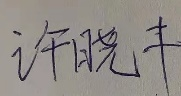 许晓丰